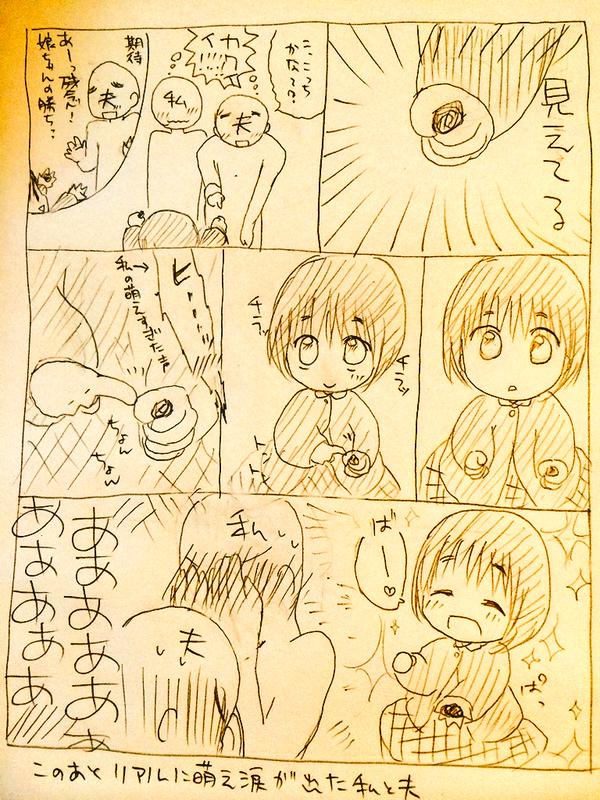 見えてる
こ、こっち
かな〜?
カワ
イイ
!!!!
夫
私
期待
夫
あーっ残念!
娘ちゃんの勝ち〜
チラッ
チラッ
トン
トン
私の萌えすぎた声
ヒーーー
ちょん
ちょん
ばー♡
ぱっ
私
夫
あああああぁ
あああああ
このあとリアルに萌え涙が出た私と夫